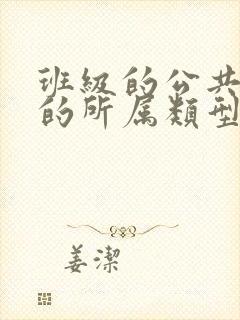 班級的公共
的所属類型
姜潔